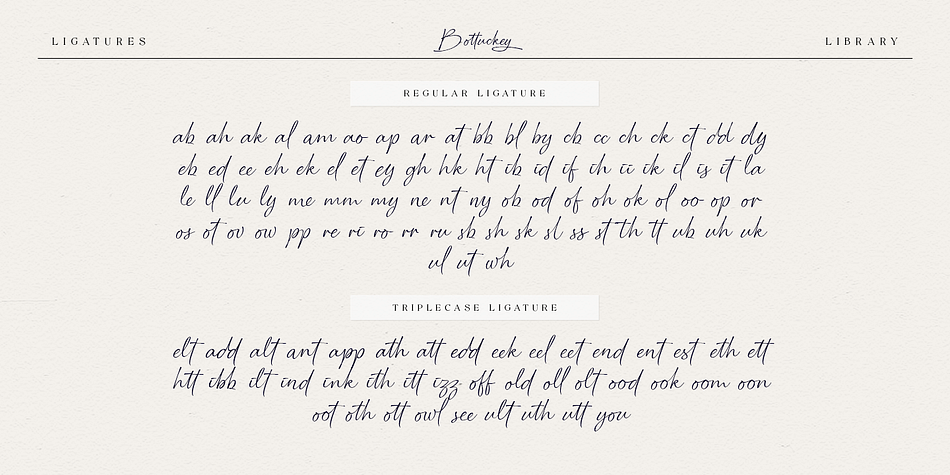 LIGATURES Bottuckey LIBRARY
REGULAR LIGATURE
ab ah ak al am ao ap ar at bb bl by cb cc ch ck ct dd dy
eb ed ee eh ek el et ey gh hk ht ib id if ih ii ik il is it la
le ll lu ly me mm my ne nt ny ob od of oh ok ol oo op or
os ot ov ow pp re ri ro rr ru sb sh sk sl ss st th tt ub uh uk
ul ut wh
TRIPLECASE LIGATURE
elt add alt ant app ath att edd eek eel eet end ent est eth ett
htt ibb ilt ind ink ith itt izz off old oll olt ood ook oom oon
oot oth ott owl see ult uth utt you